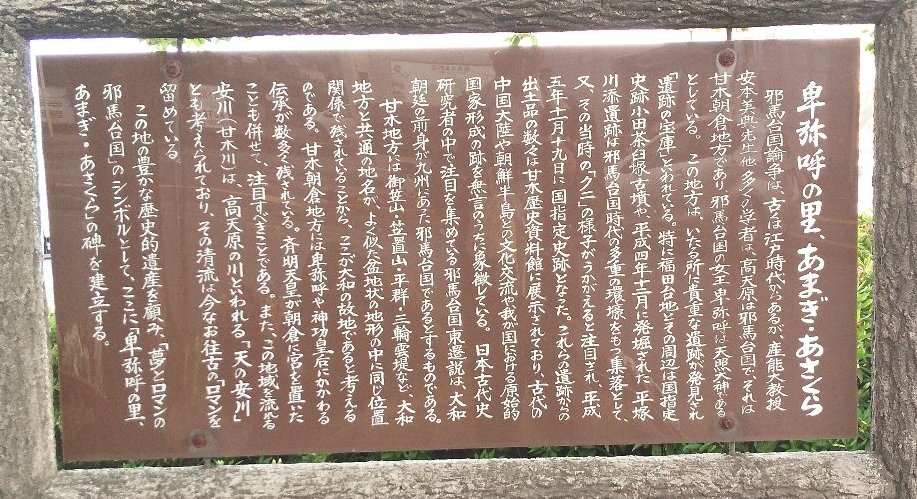 卑弥呼の里、あまぎ・あさくら
邪馬台国論争は、古くは江戸時代からあるが、産能大教授
安本美典先生他多くの学者は、高天原は邪馬台国で、それは
甘木朝倉地方であり、邪馬台国の女王卑弥呼は天照大神である
としている。この地方は、いたる所に貴重な遺跡が発見され
「遺跡の宝庫」といわれている。特に福田台地とその周辺は国指定
史跡小田茶臼塚古墳や、平成四年十二月に発堀された、平塚
川添遺跡は邪馬台国時代の多重の環壕をもつ集落として、
又、その当時の「クニ」の様子がうかがえると注目され、平成
五年十二月十九日に国指定史跡となった。これらの遺跡からの
出土品の数々は甘木歴史資料館に展示されており、古代の
中国大陸や朝鮮半島との文化交流や我が国における原始的
国家形成の跡を無言のうちに象徴している。日本古代史
研究者の中で注目を集めている邪馬台国東遷説は、大和
朝廷の前身が九州にあった邪馬台国であるとするものである。
甘木地方には御笠山・笠置山・平群・三輪雲堤など、大和
地方と共通の地名が、よく似た盆地状の地形の中に同じ位置
関係で残されていることから、ここが大和の故地であると考える
のである。甘木朝倉地方には卑弥呼や神功皇后にかかわる
伝承が数多く残されている。斉明天皇が朝倉に宮を置いた
ことも併せて、注目すべきことである。また、この地域を流れる
安川(甘木川)は、高天原の川といわれる「天の安川」
とも考えられており、その清流は今なお往古のロマンを
留めている。
この地の豊かな歴史的遺産を顧み、「夢とロマンの
邪馬台国」のシンボルとして、ここに「卑弥呼の里、
あまぎ・あさくら」の碑を建立する。